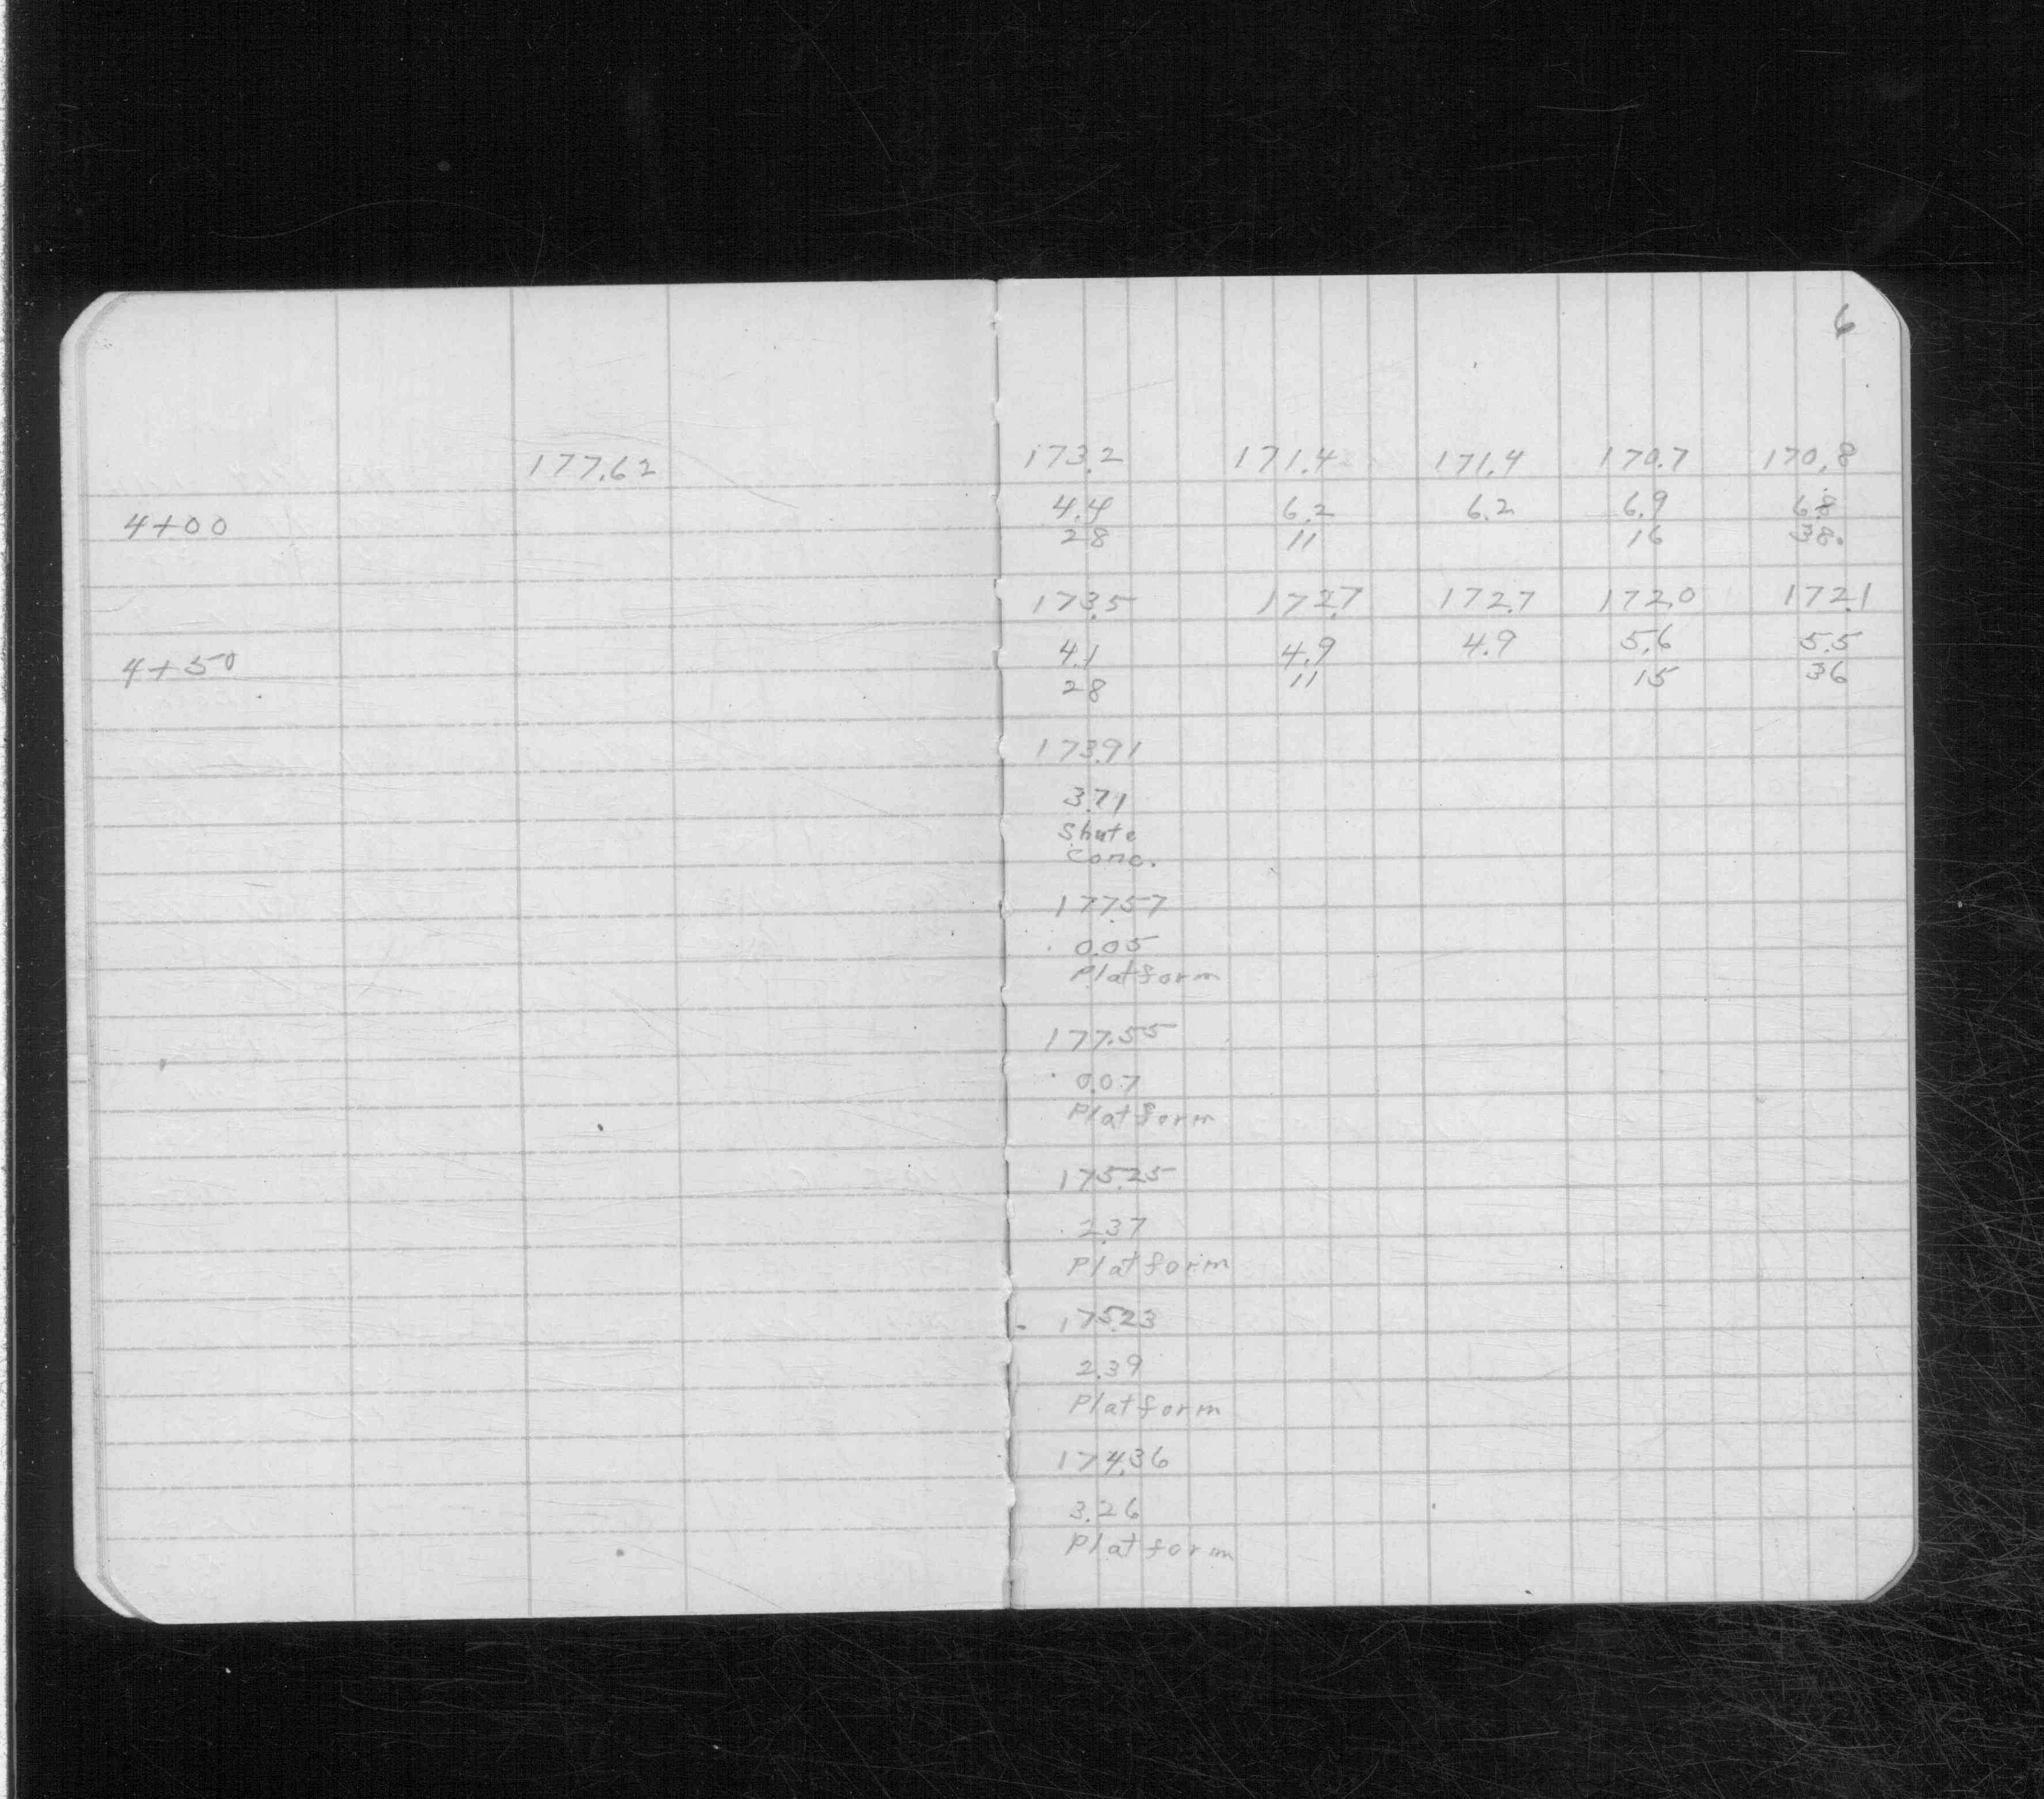 6
177.62 173.2 171.4 171.4 170.7 170.8
4+00 4.4 6.2 6.2 6.9 6.8
28 11 16 38.
173.5 172.7 172.7 172.0 172.1
4+50 4.1 4.9 4.9 5.6 5.5
28 11 15 36
173.91
3.71
Shute
Conc.
177.57
0.05
Platform
177.55
0.07
Platform
175.25
2.37
Platform
175.23
2.39
Platform
174.36
3.26
Platform